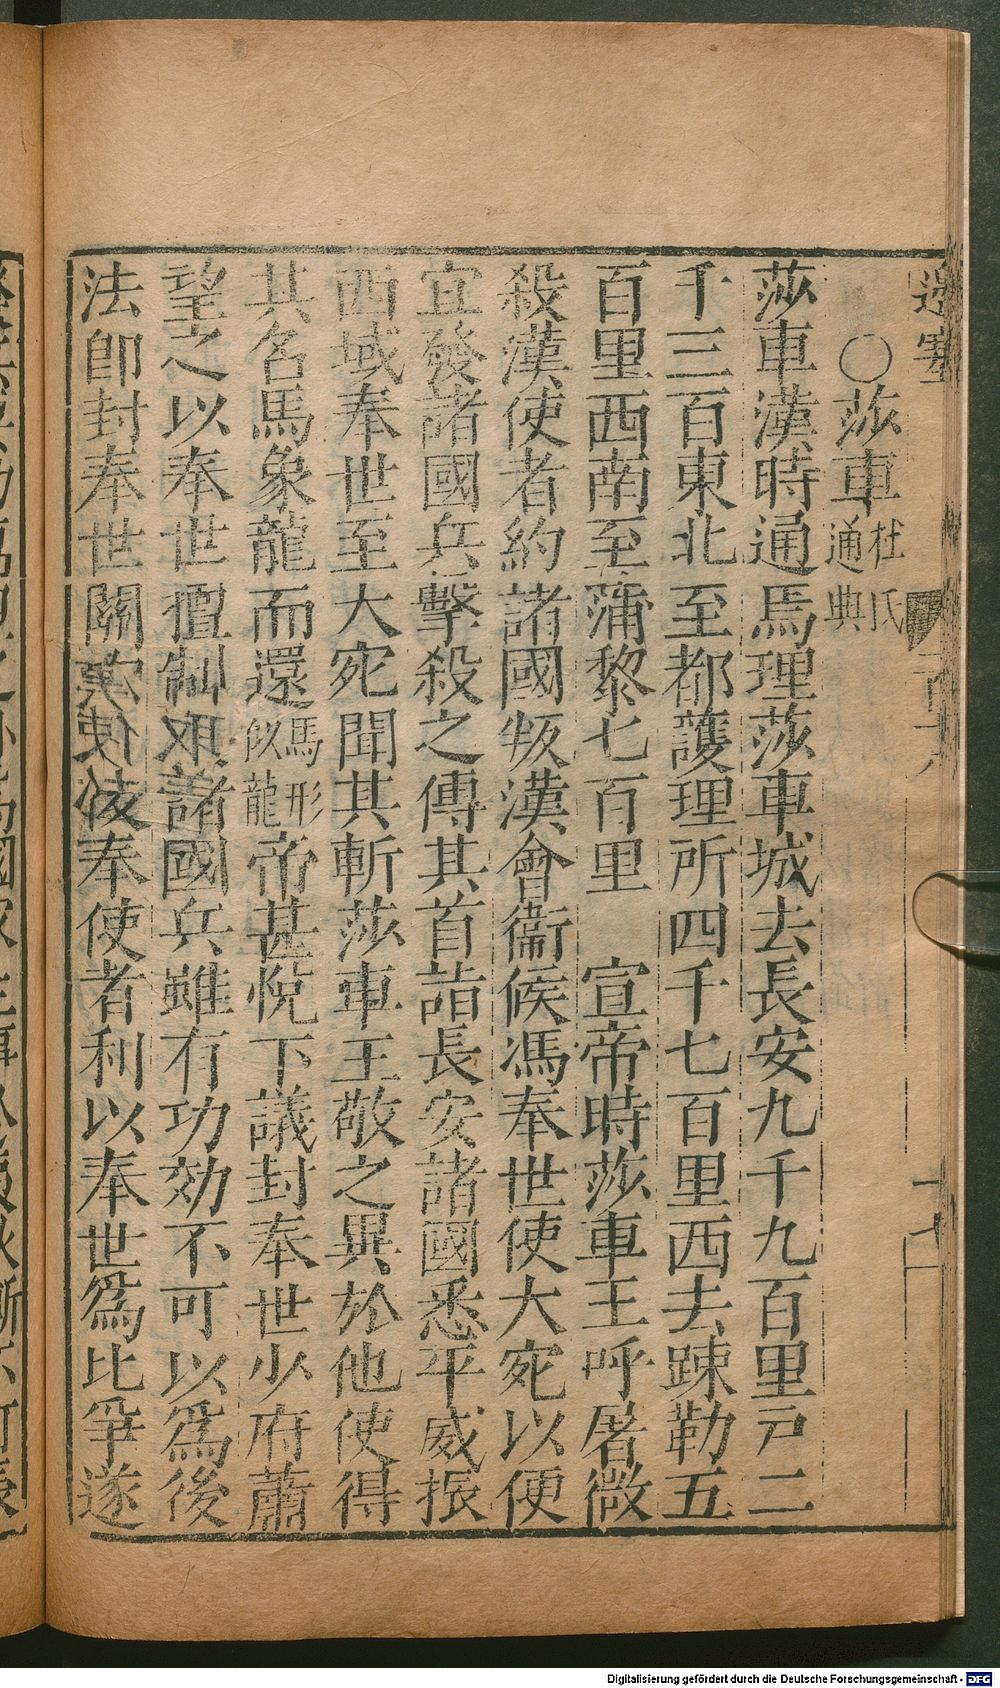 邊塞
十七
○莎車 杜氏通典
莎車漢時通焉理莎車城去長安九千九百里戸二
千三百東北至都護理所四千七百里西去踈勒五
百里西南至蒲黎七百里 宣帝時莎車王呼屠微
殺漢使者約諸國叛漢會衞候馮奉世使大宛以便
宜發諸國兵擊殺之傳其首詣長安諸國悉平威振
西域奉世至大宛聞其斬莎車王敬之異於他使得
其名馬象龍而還 馬形似龍 帝甚悅下議封奉世少府蕭
望之以奉世擅制 諸國兵雖有功効不可以爲後
法即封奉世開 後奉使者利以奉世爲比爭遂
Digitalisierung gefördert durch die Deutsche Forschungsgemeinschaft - DFG